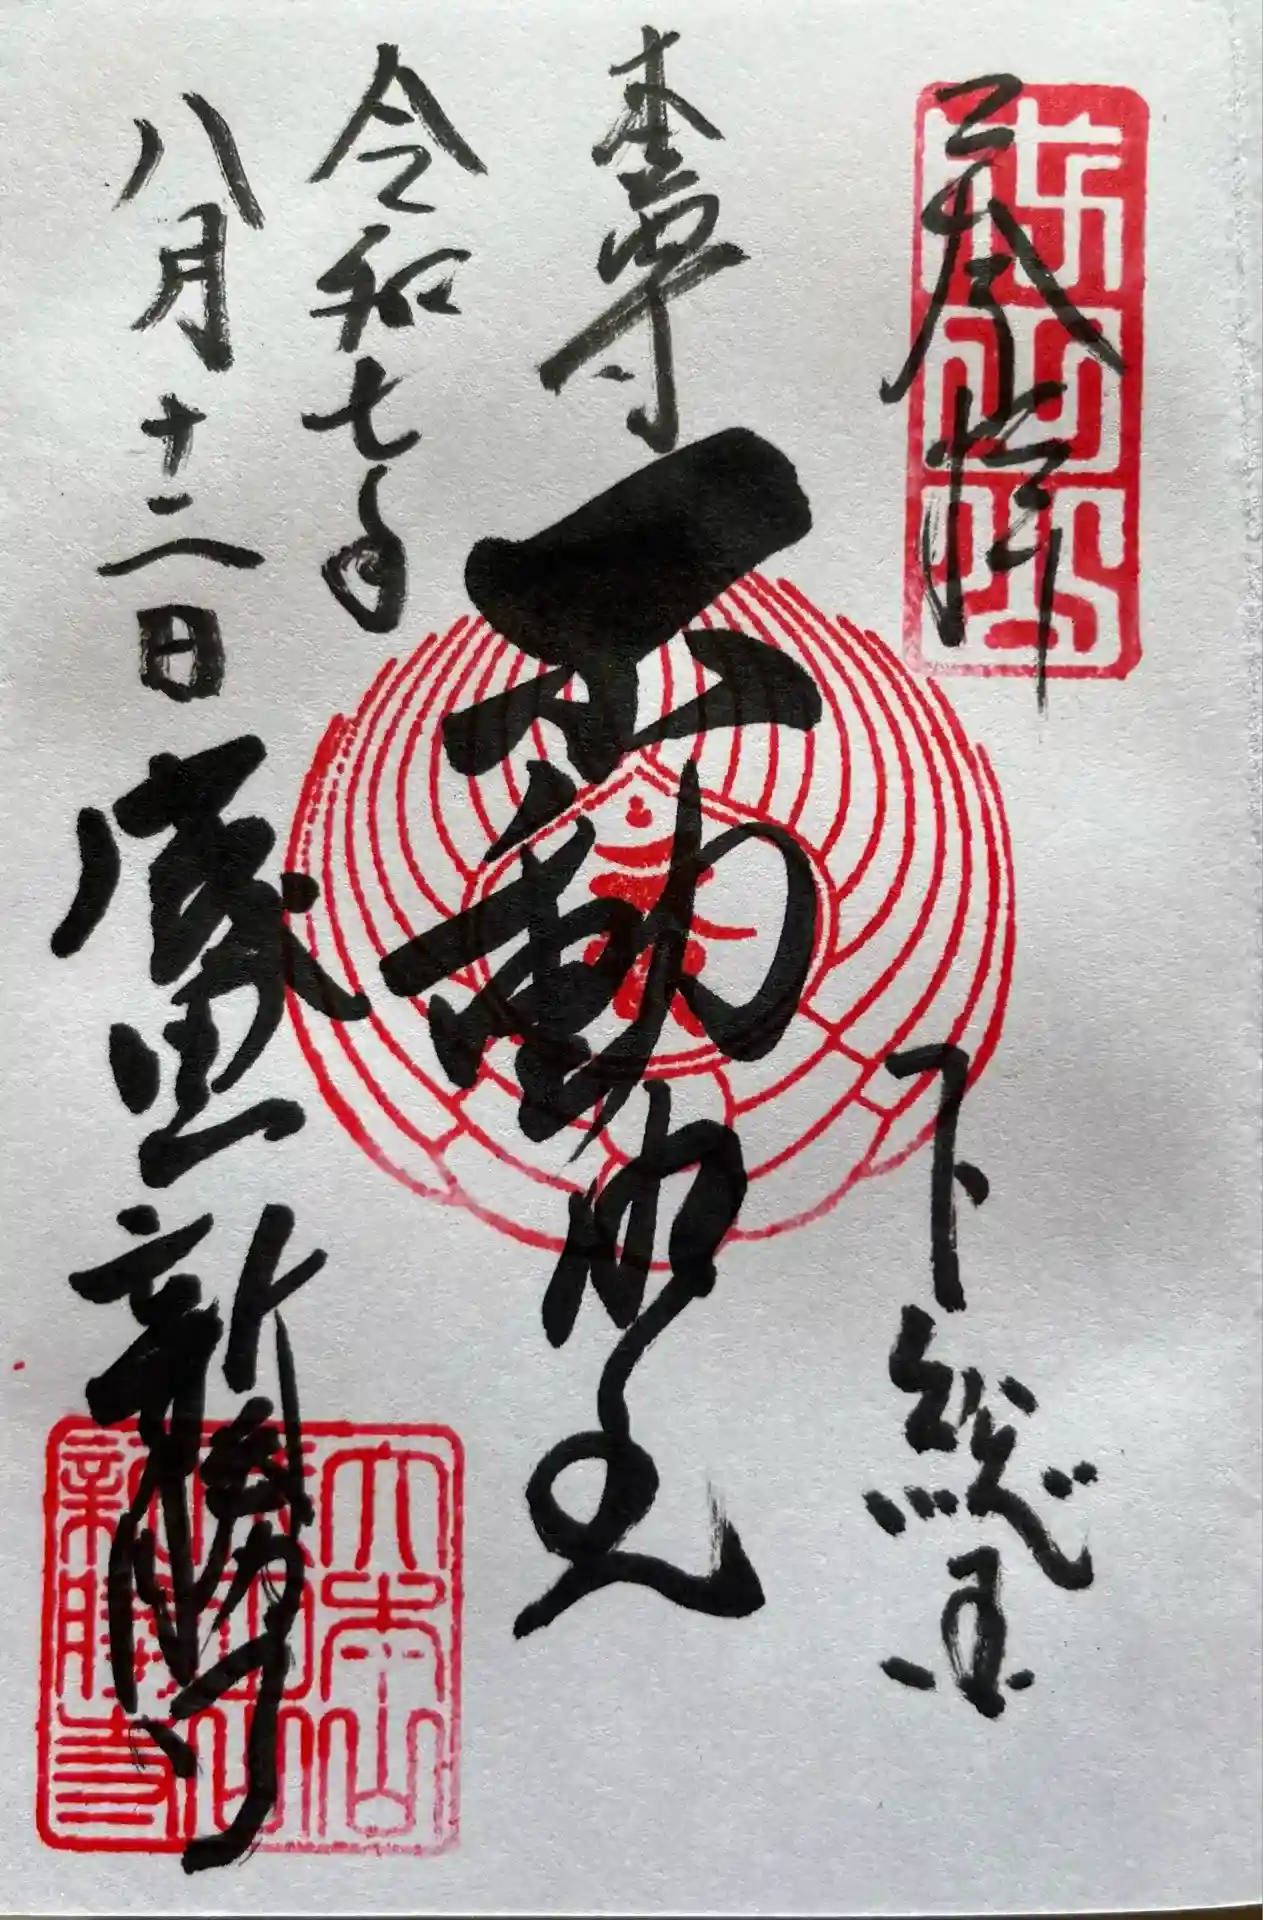 奉拝
下総国
本尊
不動明王
令和七年
八月十二日
成田山
新勝寺
成田山
大本山
成田山
新勝寺